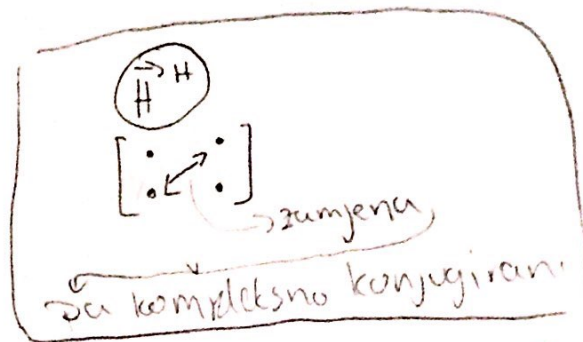 H H
zamjena,
pa kompleksno konjugiran